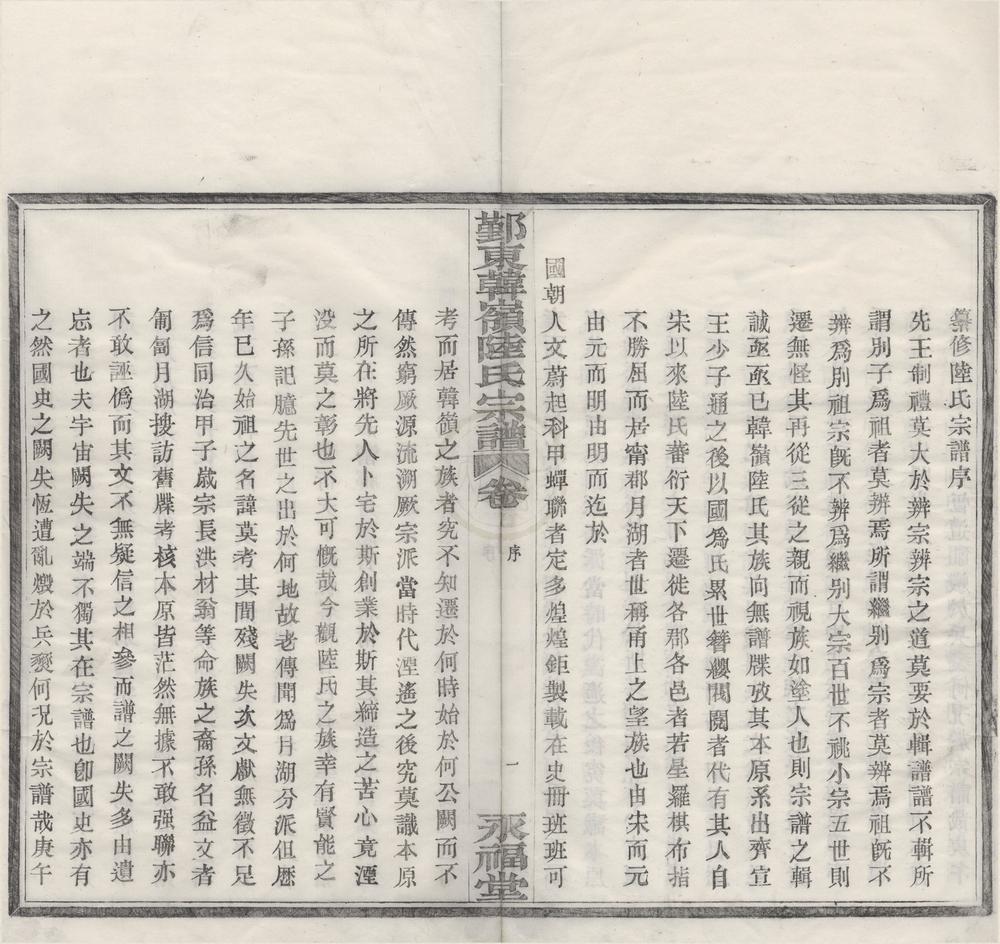 纂修陸氏宗譜序
先王制禮莫大於辨宗辨宗之道莫要於輯譜譜不輯所
謂別子爲祖者莫辨焉所謂繼別爲宗者莫辨焉祖旣不
辨爲別祖宗旣不辨爲繼別大宗百世不祧小宗五世則
遷無怪其再從三從之親而視族如塗人也則宗譜之輯
誠亟亟已韓嶺陸氏其族向無譜牒攷其本原系出齊宣
王少子通之後以國爲氏累世簪纓閥閱者代有其人自
宋以來陸氏蕃衍天下遷徙各郡各邑者若星羅棋布指
不勝屈而居甯郡月湖者世稱甬上之望族也由宋而元
由元而明由明而迄於
國朝人文蔚起科甲蟬聯者定多煌煌鉅製載在史冊班班可
鄞東韓嶺陸氏宗譜
卷首
序
一
永福堂
考而居韓嶺之族者究不知遷於何時始於何公闕而不
傳然窮厥源流溯厥宗派當時代湮遙之後究莫識本原
之所在將先人卜宅於斯創業於斯其締造之苦心竟湮
没而莫之彰也不大可慨哉今觀陸氏之族幸有賢能之
子孫記臆先世之出於何地故老傳聞爲月湖分派但歴
年已久始祖之名諱莫考其間殘闕失次文獻無徵不足
爲信同治甲子歲宗長洪材翁等命族之裔孫名益文者
匍匐月湖搜訪舊牒考核本原皆茫然無據不敢强聯亦
不敢誣僞而其文不無疑信之相參而譜之闕失多由遺
忘者也夫宇宙闕失之端不獨其在宗譜也卽國史亦有
之然國史之闕失恆遭亂燬於兵燹何况於宗譜哉庚午